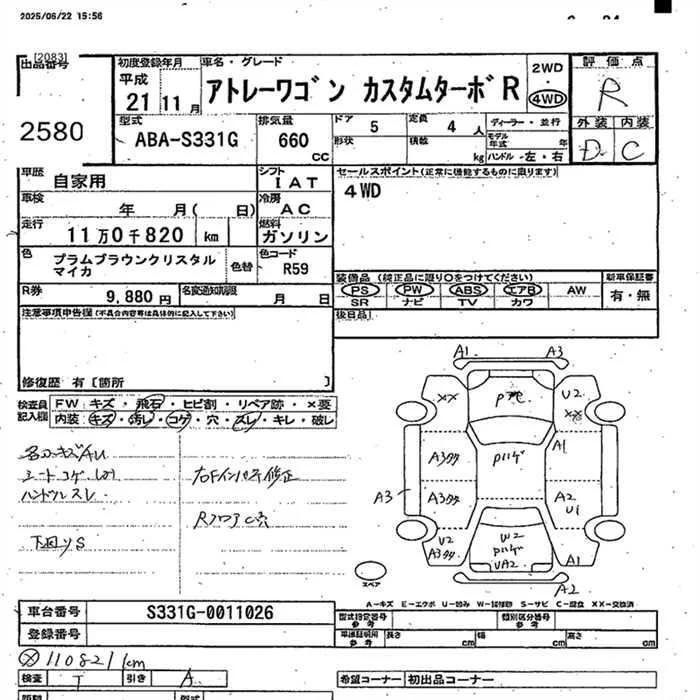 2025/06/22 15:56
[2083]
出品番号
2580
初度登録年月
平成
21 11月
車名・グレード
アトレーワゴン カスタムターボR
2WD
・
4WD
評価点
R
型式
ABA-S331G
排気量
660
CC
ドア
5
定員
4 人
形状
積載
kg
ディーラー・並行
モデル
年式 年
ハンドル・左・右
外装 内装
D C
車歴
自家用
シフト
IAT
セールスポイント(正常に機能するものに限ります)
4WD
車検
年 月( 日)
冷房
AC
走行
11万0千820 km
燃料
ガソリン
色
プラムブラウンクリスタル
マイカ
色替
色コード
R59
装備品(純正品に限り○をつけてください)
新車保証書
PS ・ PW ・ ABS ・ エアB ・ AW
SR ナビ TV カワ
有・無
R券
9,880 円
名変通知期限
月 日
後日品
注意事項申告欄(不具合内容等は具体的に記入して下さい)
修復歴 有[箇所 ]
検査員
記入欄
FW:キズ・飛石・ヒビ割・リペア跡・×要
内装:キズ・汚レ・コゲ・穴・ズレ・キレ・破レ
ハンドルスレ
右Fインパネ修正
下回りS
A1 A3
XX
U2
XX
A3
A1
A2
U1
U2
W2
UA2
A1
A2
スペア
A-キズ E-エクボ U-凹み W-補修跡 S-サビ C-腐食 XX-交換済
車台番号
S331G-0011026
登録番号
型式指定番号
参考
類別区分番号
参考
車庫証明用
参考
長さ cm
幅 cm
高さ cm
110821km
検査 T
引き A
希望コーナー 初出品コーナー
型式